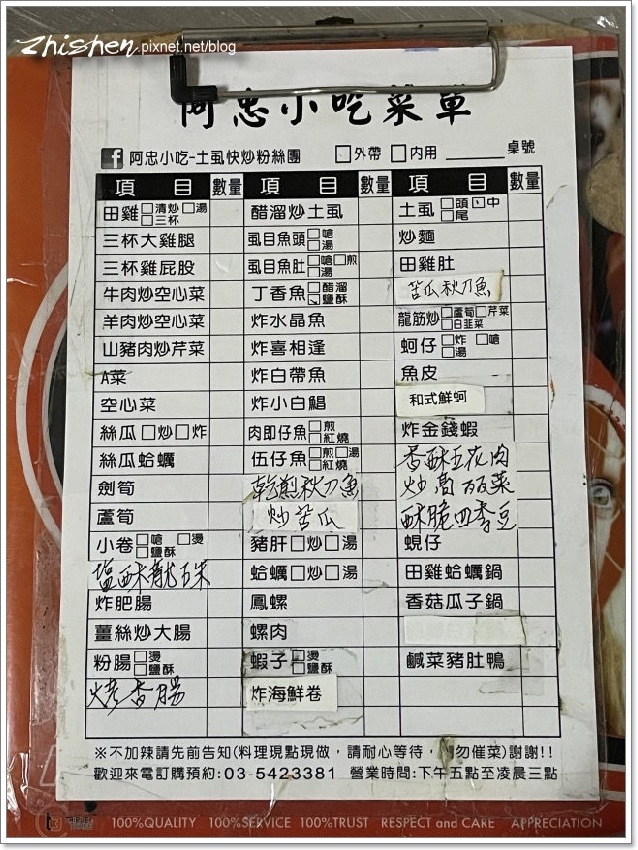 zhishen.pixnet.net/blog
阿忠小吃菜單
f 阿忠小吃-土虱快炒粉絲團 □外帶 □內用 ______ 桌號
項 目 數量 項 目 數量 項 目 數量
田雞 □清炒 □湯 □三杯 醋溜炒土虱 土虱 □頭 □中 □尾
三杯大雞腿 虱目魚頭 □嗆 □湯 炒麵
三杯雞屁股 虱目魚肚 □嗆 □煎 □湯 田雞肚
牛肉炒空心菜 丁香魚 □醋溜 □鹽酥 苦瓜秋刀魚
羊肉炒空心菜 炸水晶魚 龍筋炒 □蘆筍 □芹菜 □白韭菜
山豬肉炒芹菜 炸喜相逢 蚵仔 □炸 □嗆 □湯
A菜 炸白帶魚 魚皮
空心菜 炸小白鯧 和式鮮蚵
絲瓜 □炒 □炸 肉即仔魚 □煎 □紅燒 炸金錢蝦
絲瓜蛤蠣 伍仔魚 □煎 □湯 □紅燒 香酥五花肉
劍筍 乾煎秋刀魚 炒高麗菜
蘆筍 炒苦瓜 酥脆四季豆
小卷 □嗆 □燙 □鹽酥 豬肝 □炒 □湯 蜆仔
塩酥龍珠 蛤蠣 □炒 □湯 田雞蛤蠣鍋
炸肥腸 鳳螺 香菇瓜子鍋
薑絲炒大腸 螺肉
粉腸 □燙 □鹽酥 蝦子 □燙 □鹽酥 鹹菜豬肚鴨
烤香腸 炸海鮮卷
※不加辣請先前告知(料理現點現做,請耐心等待,勿催菜)謝謝!!
歡迎來電訂購預約:03 5423381 營業時間:下午五點至凌晨三點
100%QUALITY 100%SERVICE 100%TRUST RESPECT and CARE APPRECIATION